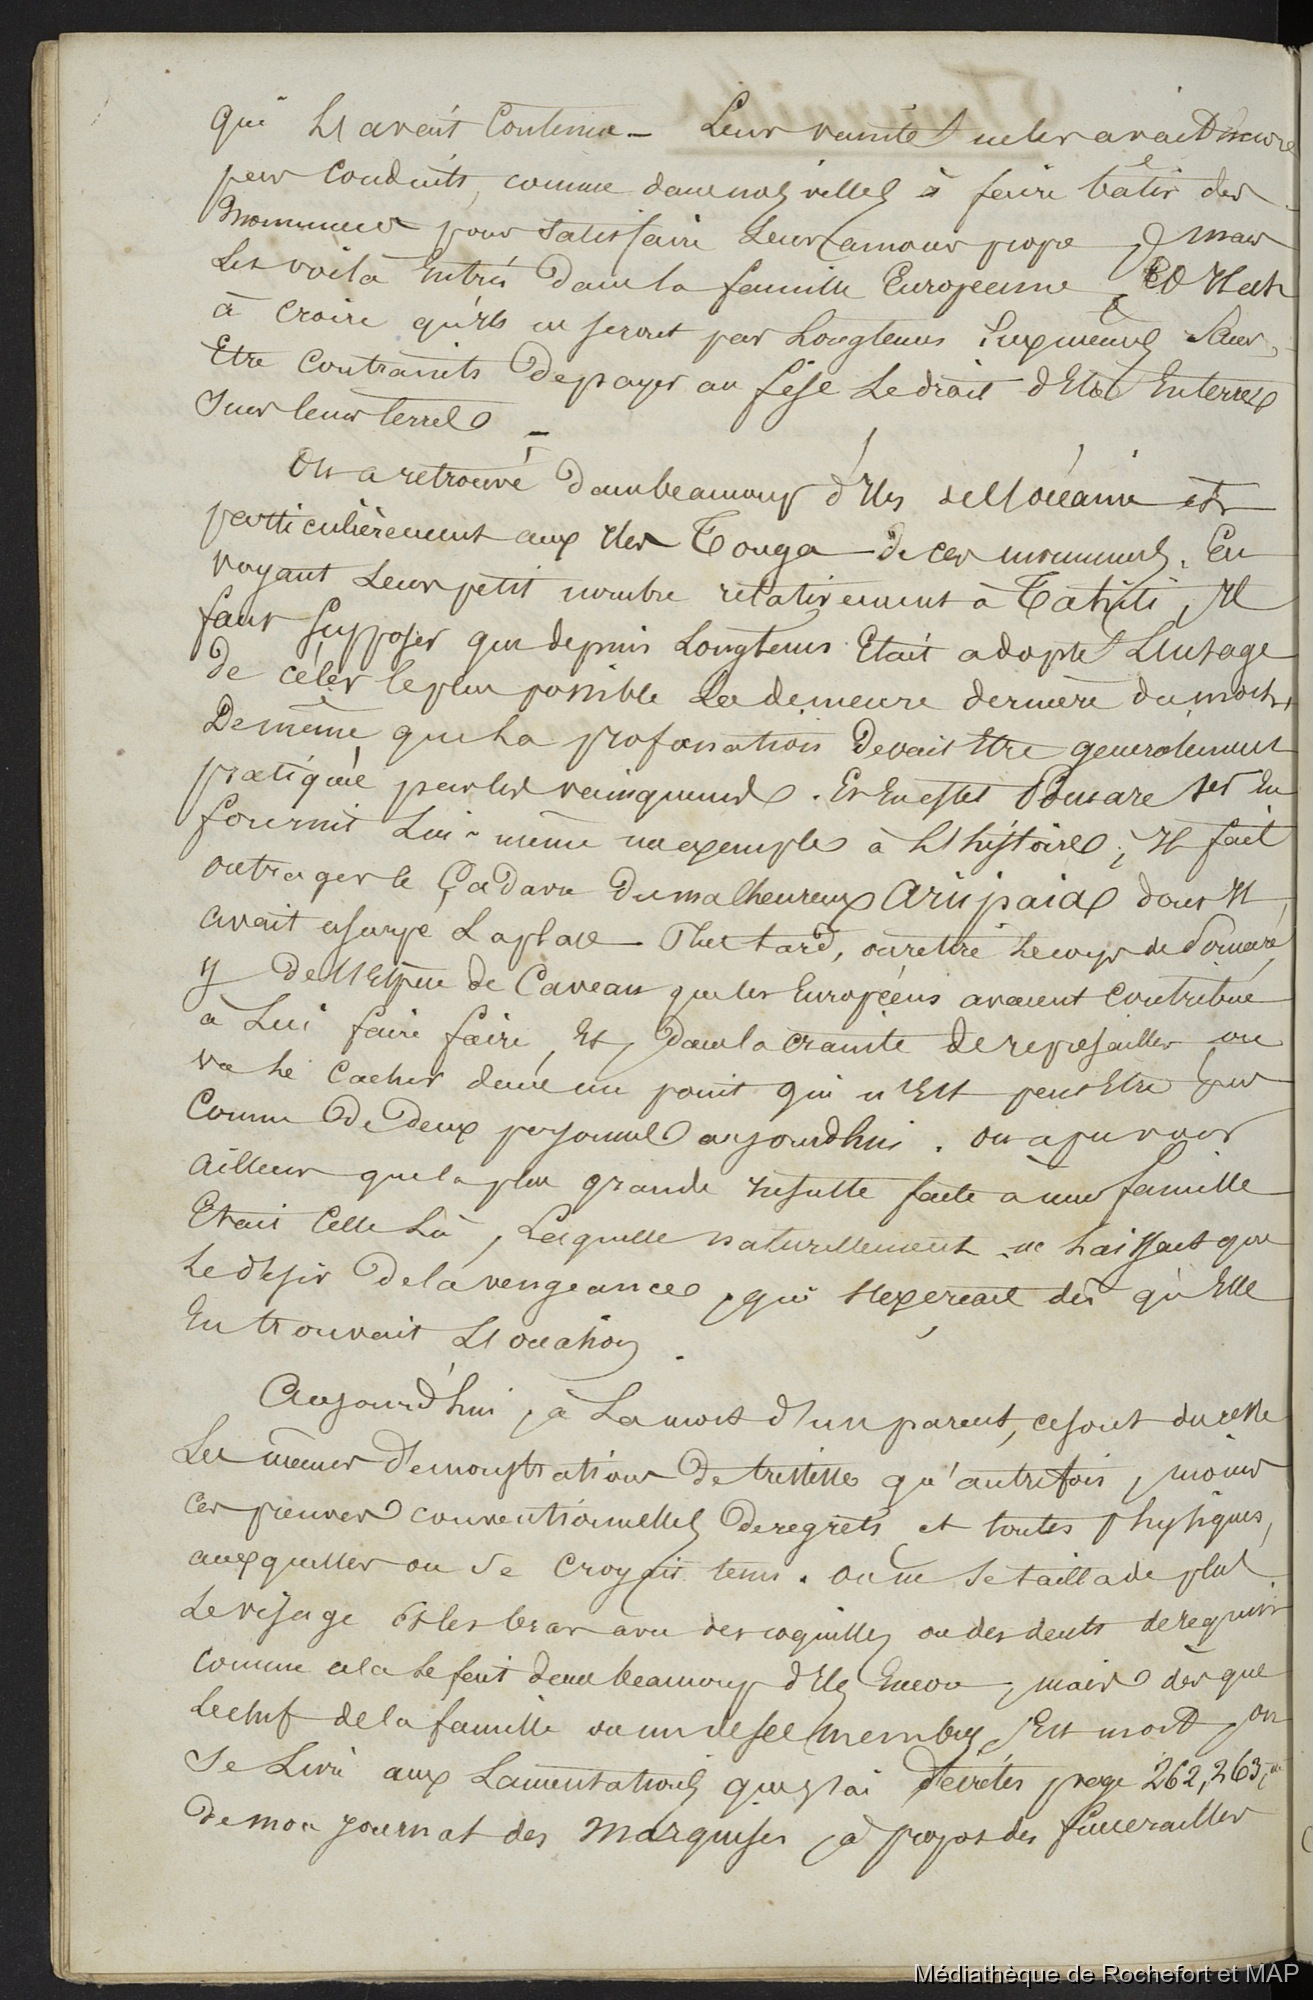 qui l'avait contenu — Leur vanité ne les avait encore
pas conduits, comme dans nos villes à faire bâtir des
monumens pour satisfaire leur amour propre, mais
les voilà entrés dans la famille Européenne, et il est
à croire qu'ils en seront par longtems sans
Etre contraints de payer au fise le droit d'Etre Enterrés
sur leurs terres
On a retrouvé dans beaucoup d'Iles de l'océanie et
particulièrement aux Iles Tonga de ces monumens. En
voyant leur petit nombre relativement à Tahiti, Il
faut supposer que depuis longtems Etait adopté l'usage
de céler le plus possible la demeure dernière du mort,
De même que la profanation devait Etre generalement
pratiquée par les vainqueurs. Et en effet Pomare 1er en
fournit lui-même un exemple à l'histoire; Il fait
outrager le Cadavre du malheureux Ariipaia dont Il
avait usurpé la place. Plus tard, on retire le corps de Pomare
II de l'Espèce de Caveau que les Européens avaient contribué
à lui faire faire, et, dans la crainte de represailles on
va le cacher dans un point qui n'est peut Etre pas
connu de deux personnes aujourdhui. on a pu voir
ailleurs que la plus grande insulte faite à une famille
Etait Celle là, laquelle naturellement ne haissait que
le désir de la vengeance, qui s'exerçait dès qu'Elle
En trouvait l'occasion.
Aujourd'hui, à la mort d'un parent, ce sont du reste
les mêmes demonstrations de tristesse qu'autrefois, moins
ces preuves conventionnelles de regrets et toutes physiques,
auxquelles on se croyait tenu. on ne se taillade plus
le visage et les bras avec des coquilles ou des dents de requins
comme cela se fait dans beaucoup d'Iles Encore, mais dès que
le chef de la famille ou un de ses membres Est mort, on
se livre aux lamentations que j'ai décrites page 262, 263,
de mon journal des Marquises, à propos des funerailles
Médiathèque de Rochefort et MAP